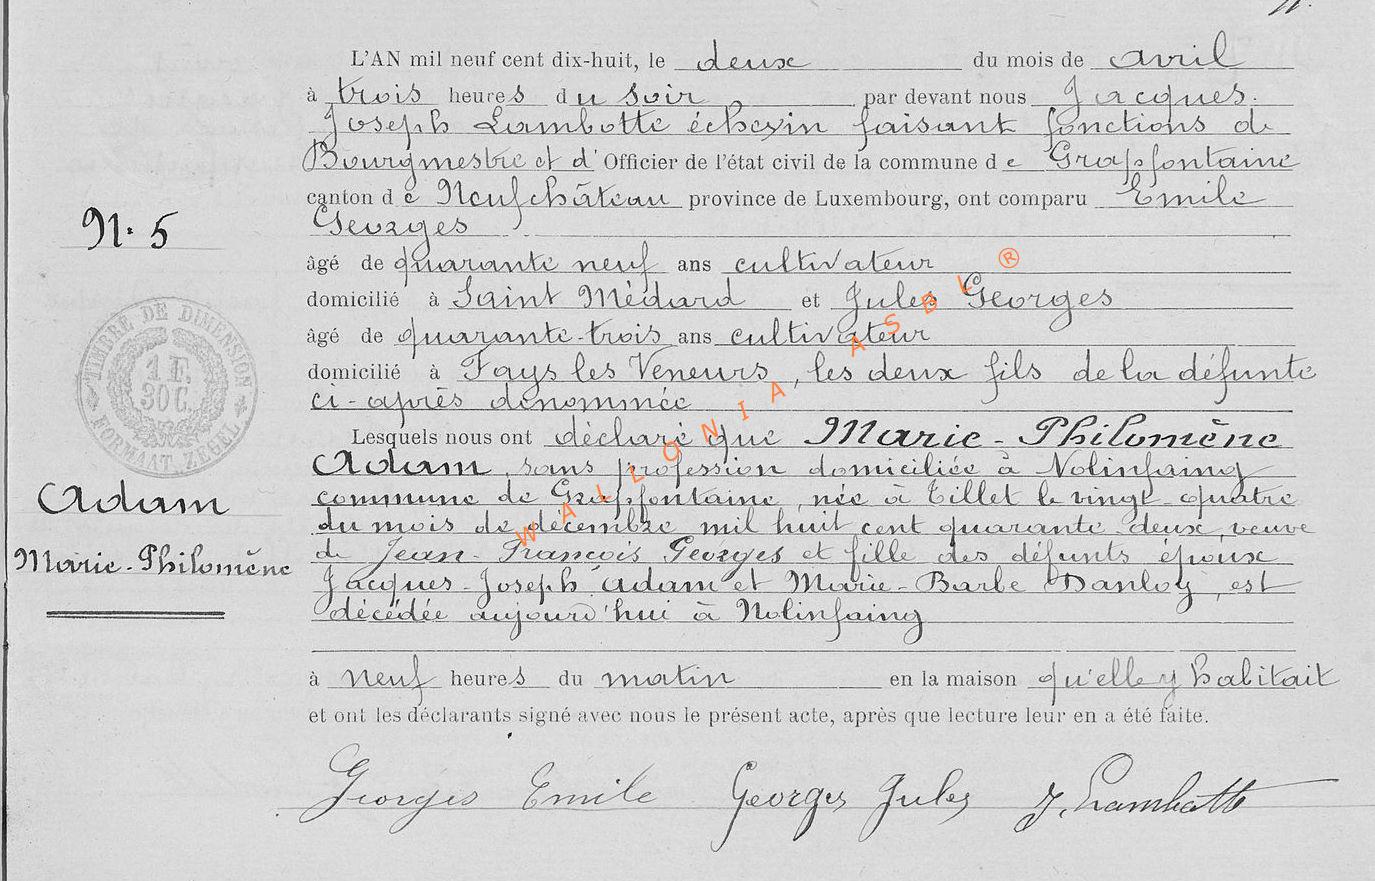 L'AN mil neuf cent dix-huit, le deux du mois de avril
à trois heures du soir, par devant nous Jacques-
Joseph Lambotte échevin faisant fonctions de
Bourgmestre et d'Officier de l'état civil de la commune de Grapfontaine
canton de Neufchâteau province de Luxembourg, ont comparu Emile
Georges
N. 5
âgé de quarante neuf ans cultivateur
domicilié à Saint Médard et Jules Georges
âgé de quarante-trois ans cultivateur
domicilié à Fays les Veneurs, les deux fils de la défunte
ci-après dénommée
TIMBRE DE DIMENSION
1 F.
30 C.
FORMAAT ZEGEL
Lesquels nous ont déclaré que Marie-Philomène
Adam, sans profession domiciliée à Nolinfaing
commune de Grapfontaine, née à Tillet le vingt-quatre
du mois de décembre mil huit cent quarante-deux, veuve
de Jean-François Georges et fille des défunts époux
Jacques-Joseph Adam et Marie-Barbe Danloy, est
décédée aujourd'hui à Nolinfaing
Adam
Marie-Philomène
à neuf heures du matin en la maison qu'elle y habitait
et ont les déclarants signé avec nous le présent acte, après que lecture leur en a été faite.
Georges Emile Georges Jules J. Lambotte
WALLONIA ASBL ®